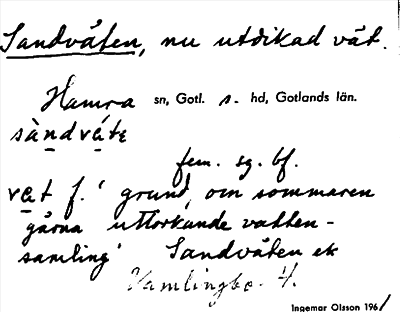 Sandväten, nu utdikad vät.
Hamra sn, Gotl. s. hd, Gotlands län.
sàndvé̜te
fem. sg. bf.
ve̜t f. 'grund, om sommaren
gärna uttorkande vatten-
samling' Sandväten ek
Vamlingbo. 4.
Ingemar Olsson 1961